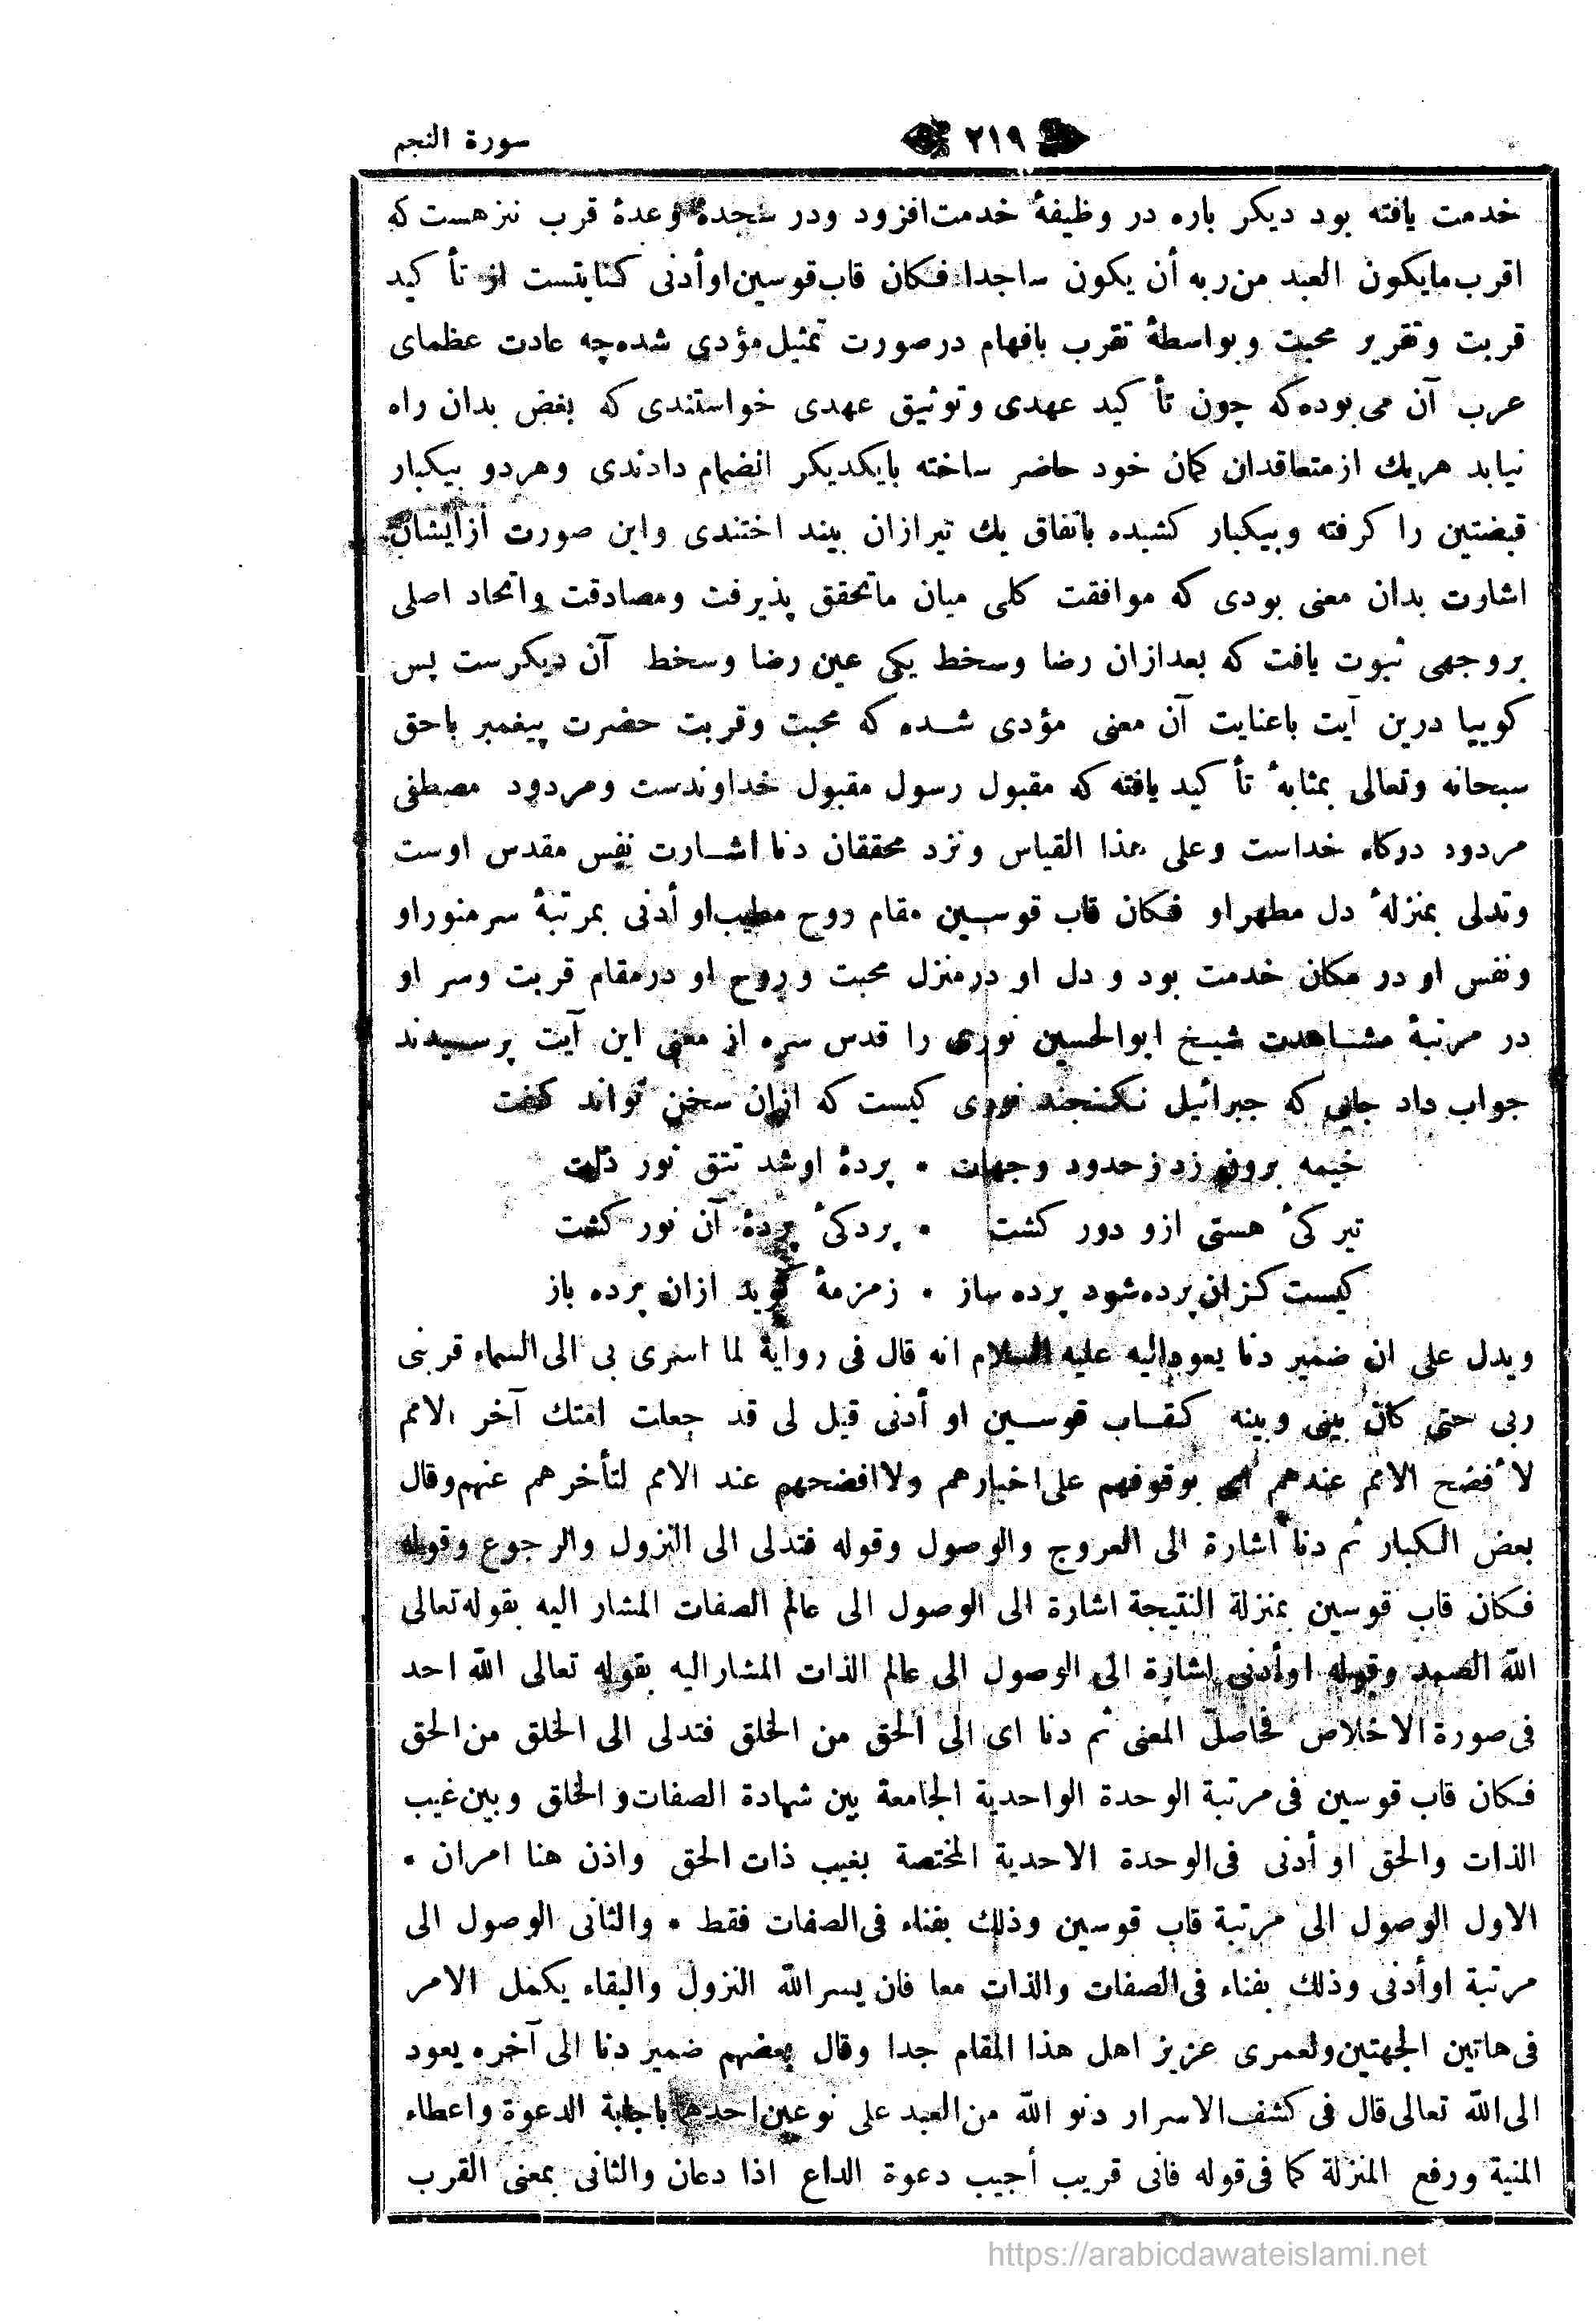 سورة النجم
٢١٩
خدمت يافته بود ديكر باره در وظيفۀ خدمت افزود ودر سجدۀ وعدۀ قرب نيز هست كه
اقرب مايكون العبد من ربه أن يكون ساجدا فكان قاب قوسين او أدنى كنايتست از تأكيد
قربت وتقرير محبت وبواسطۀ تقرب بافهام در صورت تمثيل مؤدى شده چه عادت عظماى
عرب آن مى بوده كه چون تأكيد عهدى وتوثيق عهدى خواستندى كه بغض بدان راه
نيابد هريك از متعاقدان كمان خود حاضر ساخته بايكديكر انضمام دادندى وهردو بيكبار
قبضتين را كرفته وبيكبار كشيده باتفاق يك تير ازان بيند اختندى واين صورت ازايشان
اشارت بدان معنى بودى كه موافقت كلى ميان ماتحقق پذيرفت ومصادقت واتحاد اصلى
بروجهى ثبوت يافت كه بعدازان رضا وسخط يكى عين رضا وسخط آن ديكرست پس
كوييا درين آيت باعنايت آن معنى مؤدى شده كه محبت وقربت حضرت پيغمبر باحق
سبحانه وتعالى بمثابۀ تأكيد يافته كه مقبول رسول مقبول خداوندست ومردود مصطفى
مردود دركاه خداست وعلى هذا القياس ونزد محققان دنا اشارت نفس مقدس اوست
وتدلى بمنزلۀ دل مطهر او فكان قاب قوسين مقام روح مطيب او أدنى بمرتبۀ سر منور او
ونفس او در مكان خدمت بود و دل او در منزل محبت و روح او در مقام قربت وسر او
در مرتبۀ مشاهدت شيخ ابوالحسين نورى را قدس سره از معنى اين آيت پرسيدند
جواب داد جايى كه جبرائيل نكنجند نورى كيست كه ازان سخن تواند كفت
خيمه برون زد ز حدود وجهات • پردۀ او شد تتق نور ذات
تير كئ هستى ازو دور كشت • پردكئ پردۀ آن نور كشت
كيست كزان پرده شود پرده ساز • زمزمۀ كويد ازان پرده باز
ويدل على ان ضمير دنا يعود اليه عليه السلام انه قال فى رواية لما اسرى بى الى السماء قربنى
ربى حتى كان بينى وبينه كقاب قوسين او أدنى قيل لى قد جعلت امتك آخر الامم
لأفضح الامم عندهم اى بوقوفهم على اخبارهم ولا افضحهم عند الامم لتأخرهم عنهم وقال
بعض الكبار ثم دنا اشارة الى العروج والوصول وقوله فتدلى الى النزول والرجوع وقوله
فكان قاب قوسين بمنزلة النتيجة اشارة الى الوصول الى عالم الصفات المشار اليه بقوله تعالى
الله الصمد وقوله او أدنى اشارة الى الوصول الى عالم الذات المشار اليه بقوله تعالى الله احد
فى صورة الاخلاص فحاصل المعنى ثم دنا اى الى الحق من الخلق فتدلى الى الخلق من الحق
فكان قاب قوسين فى مرتبة الوحدة الواحدية الجامعة بين شهادة الصفات والخلق وبين غيب
الذات والحق او أدنى فى الوحدة الاحدية المختصة بغيب ذات الحق واذن هنا امران •
الاول الوصول الى مرتبة قاب قوسين وذلك بفناء فى الصفات فقط • والثانى الوصول الى
مرتبة او أدنى وذلك بفناء فى الصفات والذات معا فان يسر الله النزول والبقاء يكمل الامر
فى هاتين الجهتين ولعمرى عزيز اهل هذا المقام جدا وقال بعضهم ضمير دنا الى آخره يعود
الى الله تعالى قال فى كشف الاسرار دنو الله من العبد على نوعين احدهما باجابة الدعوة واعطاء
المنية ورفع المنزلة كما فى قوله فانى قريب أجيب دعوة الداع اذا دعان والثانى بمعنى القرب
https://arabicdawateislami.net